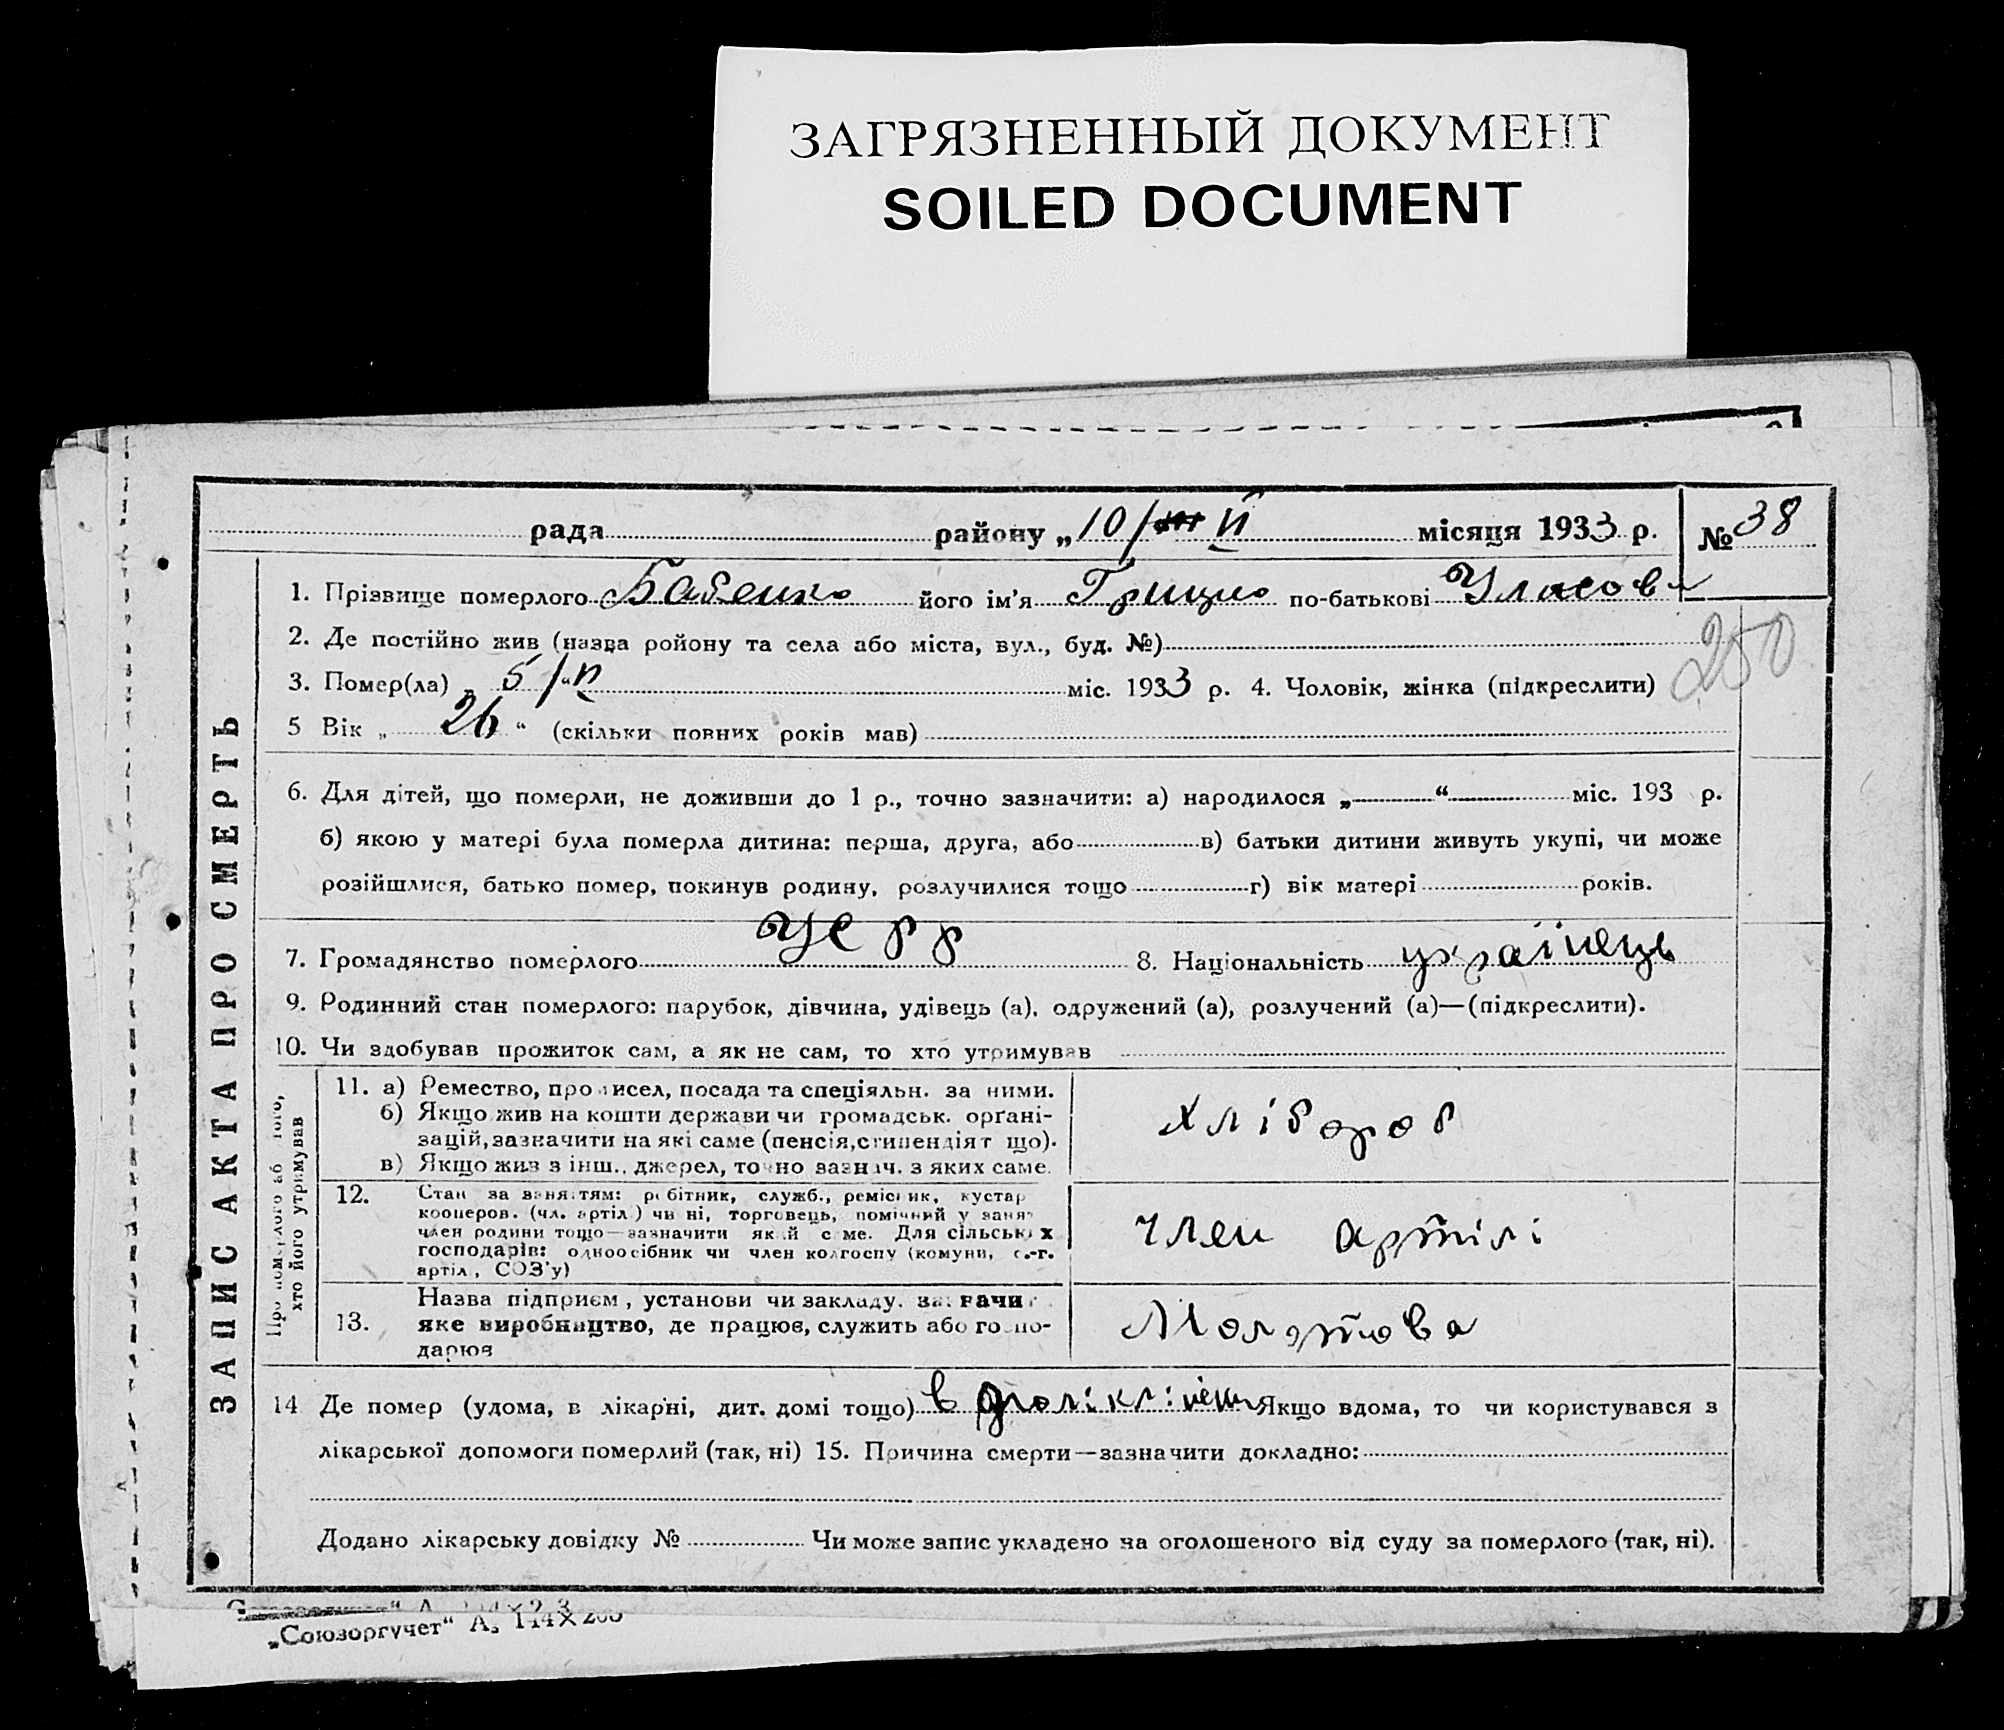 ЗАГРЯЗНЕННЫЙ ДОКУМЕНТ
SOILED DOCUMENT
рада району „10/II місяця 1933 р. № 38
1. Прізвище померлого Бабенко його ім'я Грицко по-батькові Уласова
250
2. Де постійно жив (назва ройону та села або міста, вул., буд. №)
3. Помер(ла) „ 5/II міс. 1933 р. 4. Чоловік, жінка (підкреслити)
5 Вік „ 26 “ (скільки повних років мав)
6. Для дітей, що померли, не доживши до 1 р., точно зазначити: а) народилося „ “ міс. 193 р.
б) якою у матері була померла дитина: перша, друга, або в) батьки дитини живуть укупі, чи може
розійшлися, батько помер, покинув родину, розлучилися тощо г) вік матері років.
7. Громадянство померлого УСРР 8. Національність українець
9. Родинний стан померлого: парубок, дівчина, удівець (а), одружений (а), розлучений (а)—(підкреслити).
10. Чи здобував прожиток сам, а як не сам, то хто утримував
ЗАПИС АКТА ПРО СМЕРТЬ
Про померлого або того,
хто його утримував
11. а) Ремество, промисел, посада та спеціяльн. за ними.
б) Якщо жив на кошти держави чи громадськ. орґані-
зацій, зазначити на які саме (пенсія, стипендія т що).
в) Якщо жив з інш., джерел, точно зазнач. з яких саме.
хлібороб
12. Стан за заняттям: робітник, служб., ремісник, кустар
кооперов. (чл. артіл) чи ні, торговець, помічний у занят
член родини тощо—зазначити який саме. Для сільських
господарів: одноосібник чи член колгоспу (комуни, с.-г.
артіл, СОЗ'у)
член артілі
13. Назва підприєм, установи чи закладу. зазначит
яке виробництво, де працює, служить або госпо-
дарює
Молотова
14 Де помер (удома, в лікарні, дит. домі тощо) в Якщо вдома, то чи користувався з
лікарської допомоги померлий (так, ні) 15. Причина смерти—зазначити докладно:
Додано лікарську довідку № Чи може запис укладено на оголошеного від суду за померлого (так, ні).
„Союзоргучет“